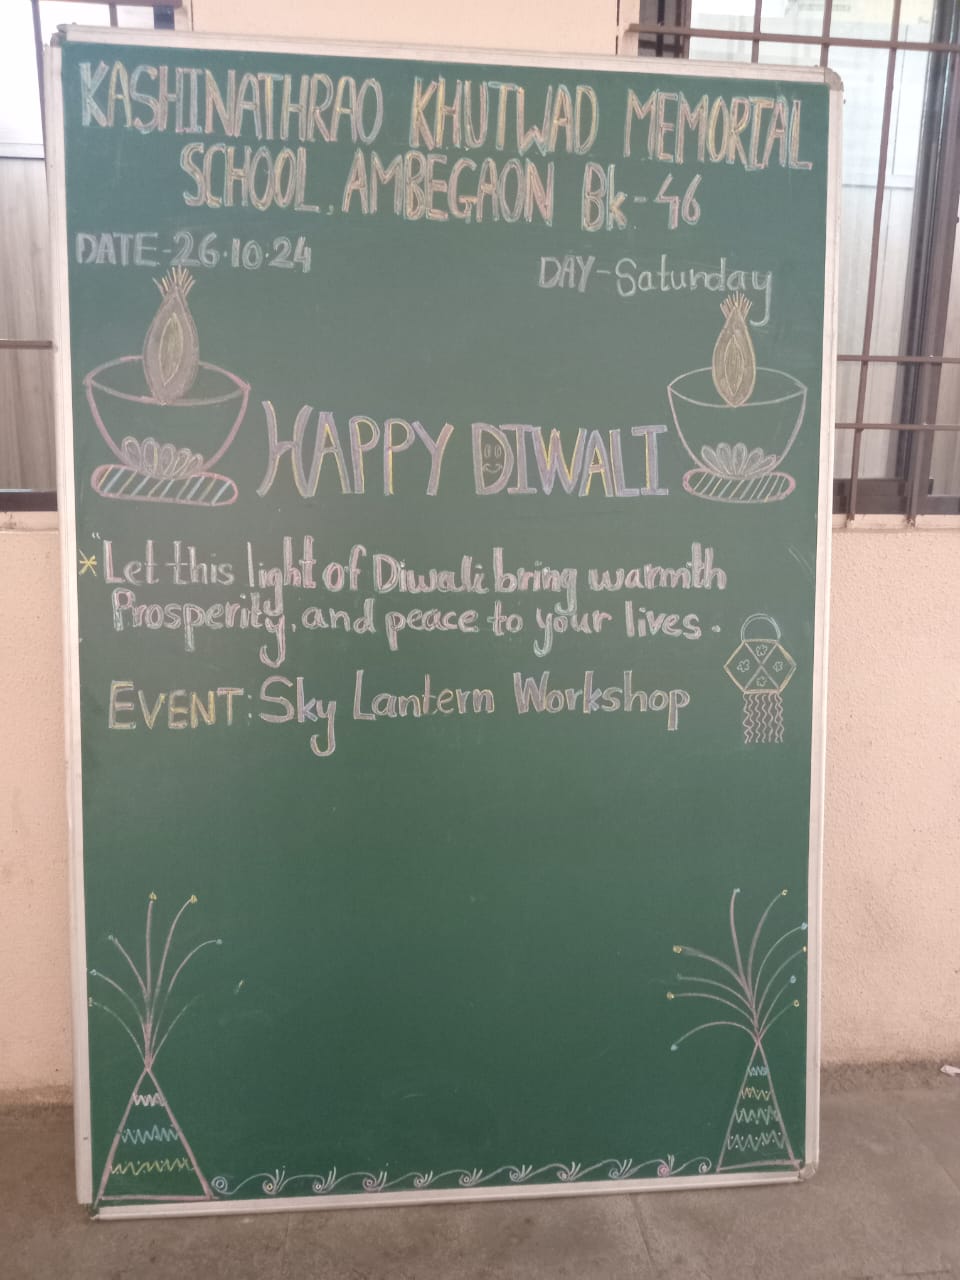 KASHINATHRAO KHUTWAD MEMORIAL
SCHOOL, AMBEGAON Bk-46
DATE-26.10.24 DAY-Saturday
HAPPY DIWALI
*"Let this light of Diwali bring warmth
Prosperity, and peace to your lives.
EVENT: Sky Lantern Workshop